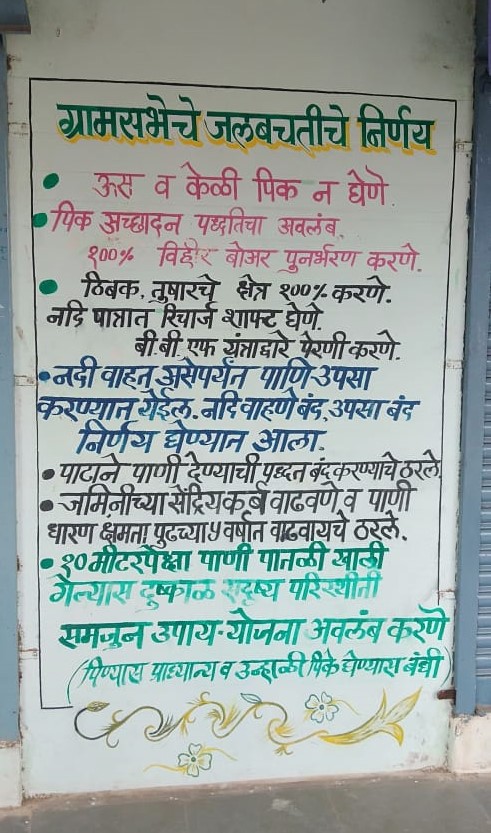 ग्रामसभेचे जलबचतीचे निर्णय
• ऊस व केळी पिक न घेणे.
• पिक अच्छादन पध्दतिचा अवलंब.
१००% विहीर बोअर पुनर्भरण करणे.
• ठिबक, तुषारचे क्षेत्र १००% करणे.
नदि पात्रात रिचार्ज शाफ्ट घेणे.
बी.बी.एफ यंत्राद्वारे पेरणी करणे.
• नदी वाहत असेपर्यंत पाणि उपसा
करण्यात येईल. नदि वाहणे बंद, उपसा बंद
निर्णय घेण्यात आला.
• पाटाने पाणी देण्याची पध्दत बंद करण्याचे ठरले.
• जमिनीच्या सेंद्रिय कर्ब वाढवणे व पाणी
धारण क्षमता पुढच्या ५ वर्षात वाढवायचे ठरले.
• १० मीटरपेक्षा पाणी पातळी खाली
गेल्यास दुष्काळ सदृष्य परिस्थीती
समजुन उपाय-योजना अवलंब करणे
(पिण्यास प्राध्यान्य व उन्हाळी पिके घेण्यास बंधी)